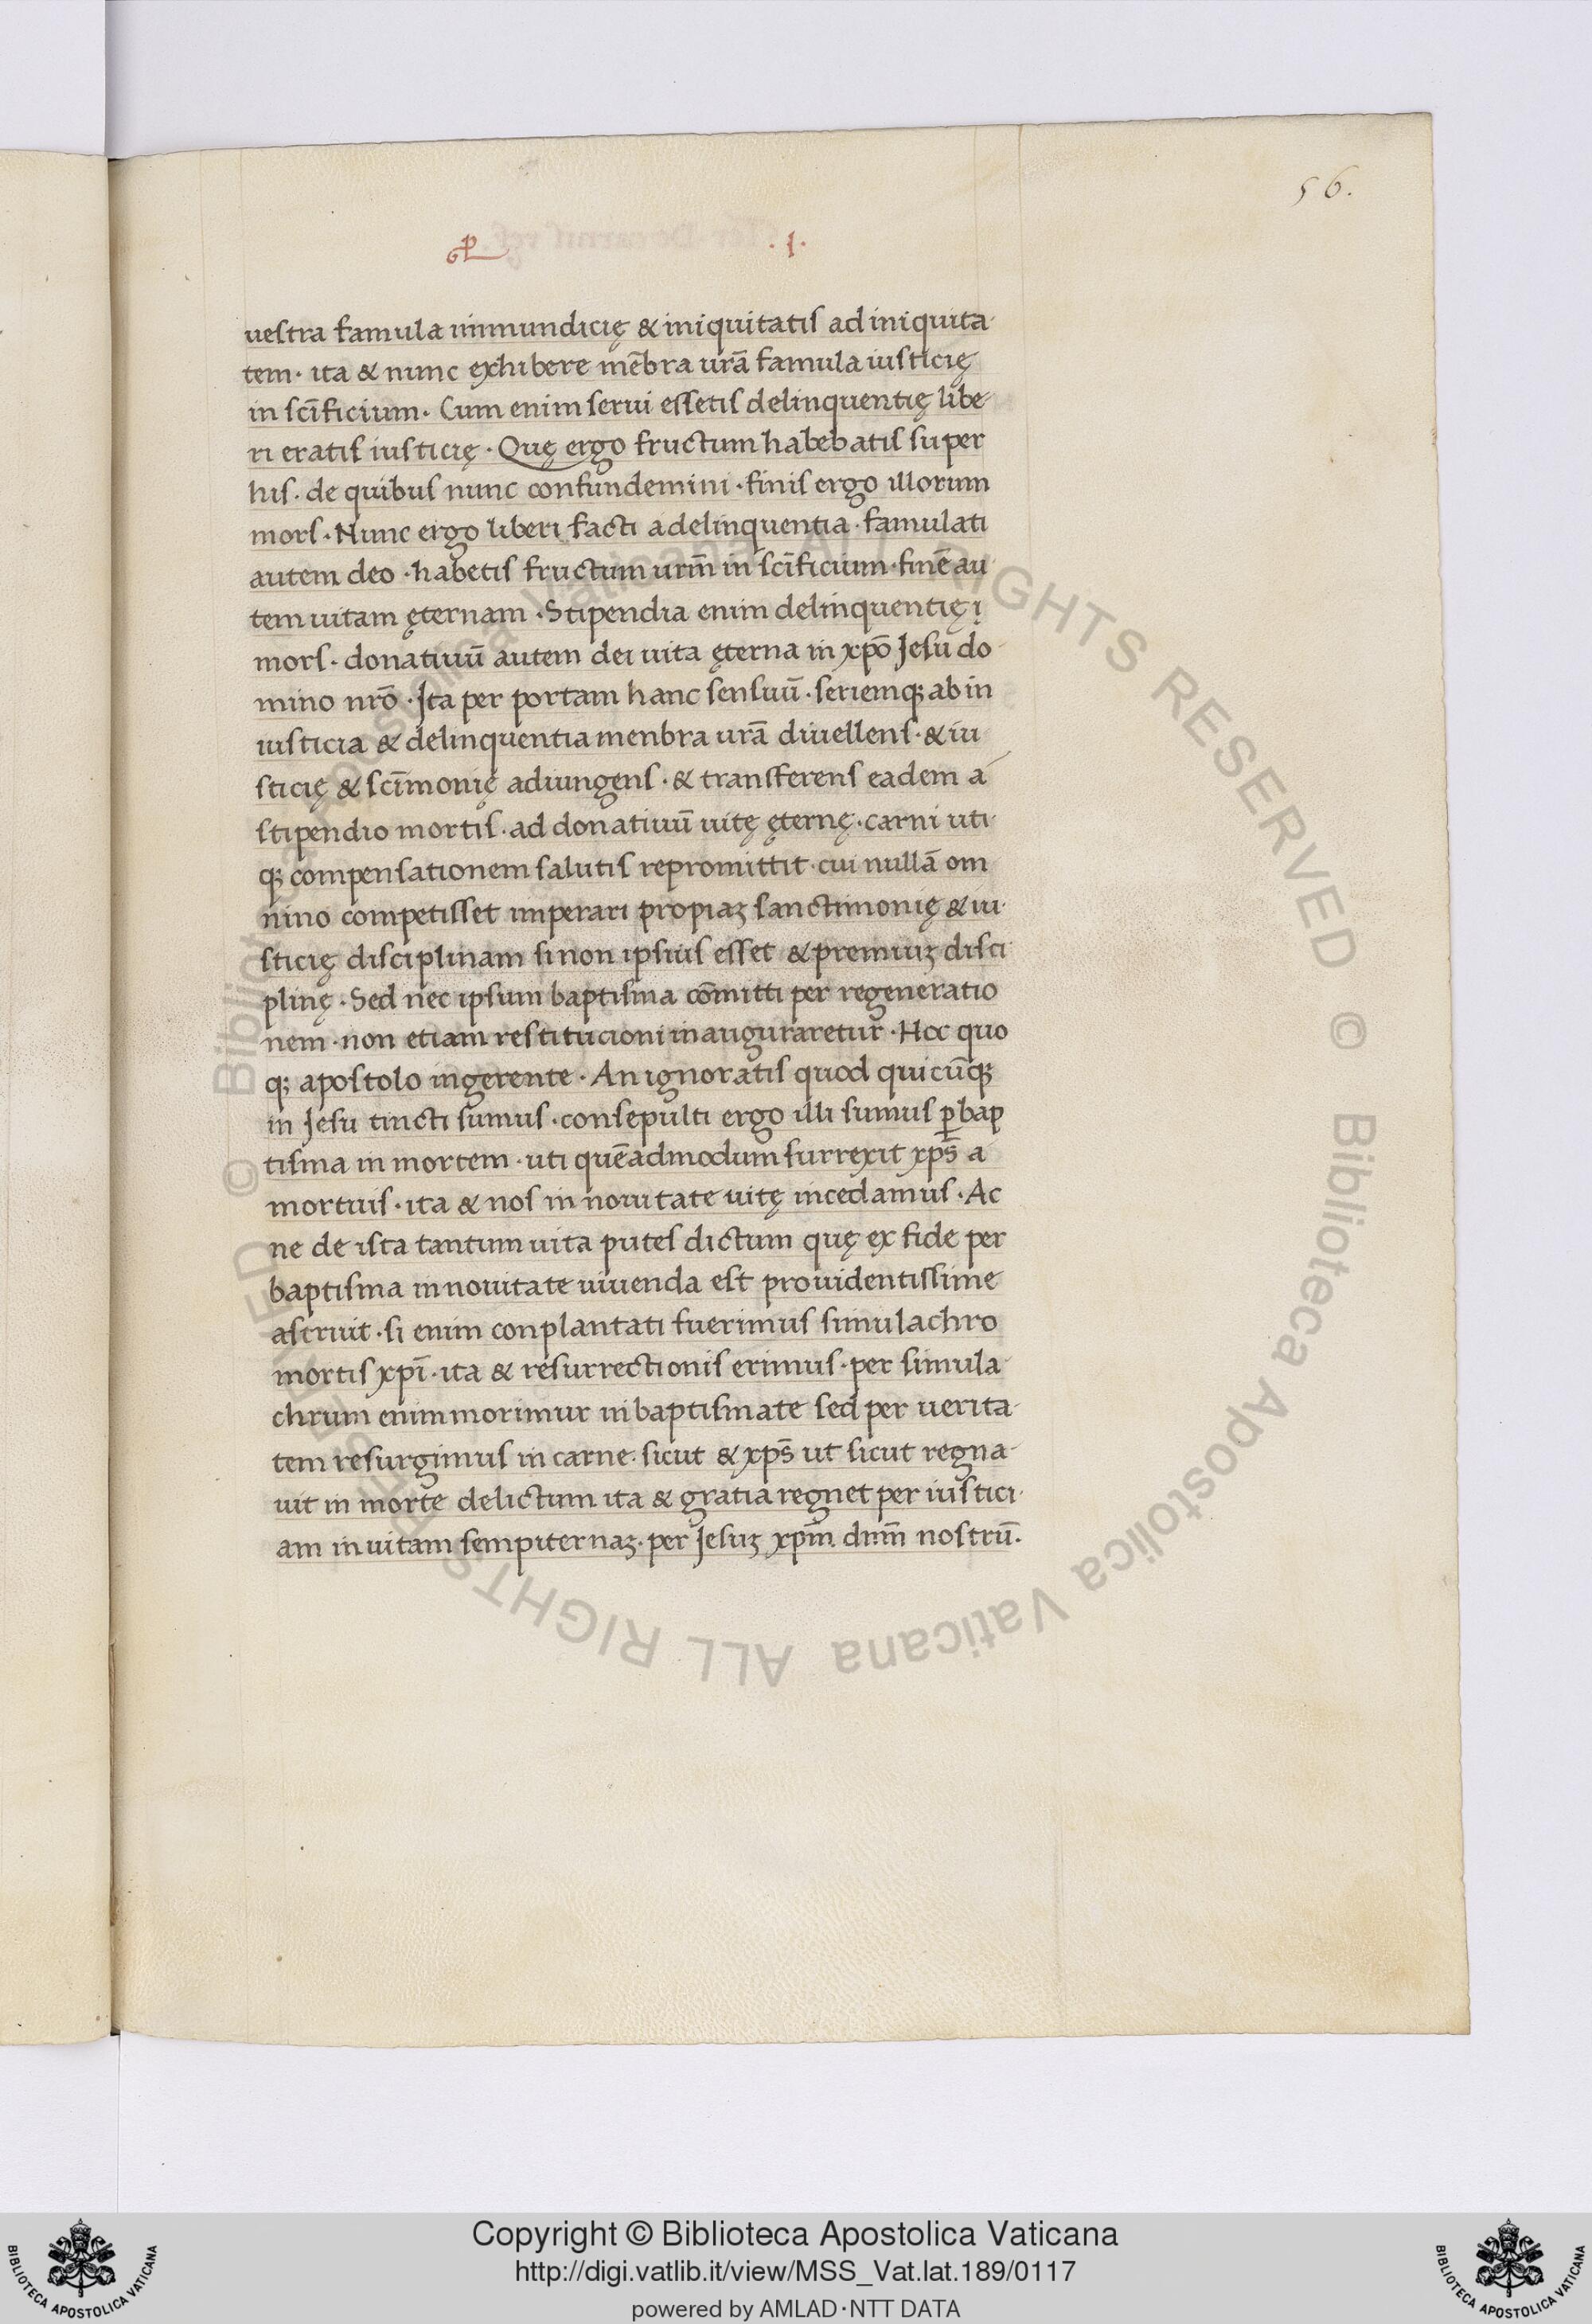 56.
·I·
uestra famula immundicię & iniquitatis ad iniquita-
tem· ita & nunc exhibere mēbra urā famula iusticię
in scīficium· Cum enim serui essetis delinquentię libe-
ri eratis iusticię· Quę ergo fructum habebatis super
his· de quibus nunc confundemini· finis ergo illorum
mors· Nunc ergo liberi facti a delinquentia· famulati
autem deo· habetis fructum urm̄ in scīficium· finē au-
tem uitam ęternam· Stipendia enim delinquentię
mors· donatiuū autem dei uita ęterna in xpō Jesu do-
mino nrō· Ita per portam hanc sensuū· seriemqꝫ ab in
iusticia & delinquentia menbra urā diuellens· & iu-
sticię & scīmonię adiungens· & transferens eadem a
stipendio mortis· ad donatiuū uitę ęternę· carni uti-
qꝫ compensationem salutis repromittit· cui nullā om
nino competisset imperari propiaꝫ sanctimonię & iu-
sticię disciplinam si non ipsius esset & premiuꝫ disci-
plinę· Sed nec ipsum baptisma cōmitti per regeneratio
nem· non etiam restitucioni inauguraretur· Hoc quo
qꝫ apostolo ingerente· An ignoratis quod quicūqꝫ
in Jesu tincti sumus· consepulti ergo illi sumus ꝑ bap
tisma in mortem· uti quēadmodum surrexit xps̄ a
mortuis· ita & nos in nouitate uitę incedamus· Ac
ne de ista tantum uita putes dictum quę ex fide per
baptisma in nouitate uiuenda est prouidentissime
astruit· si enim conplantati fuerimus simulachro
mortis xpī· ita & resurrectionis erimus· per simula-
chrum enim morimur in baptismate sed per uerita-
tem resurgimus in carne· sicut & xps̄ ut sicut regna-
uit in morte delictum ita & gratia regnet per iustici-
am in uitam sempiternaꝫ· per Jesuꝫ xpm̄ dnm̄ nostrū.
© Biblioteca Apostolica Vaticana ALL RIGHTS RESERVED © Biblioteca Apostolica Vaticana ALL RIGHTS RESERVED
Copyright © Biblioteca Apostolica Vaticana
http://digi.vatlib.it/view/MSS_Vat.lat.189/0117
powered by AMLAD·NTT DATA
BIBLIOTECA APOSTOLICA VATICANA
BIBLIOTECA APOSTOLICA VATICANA